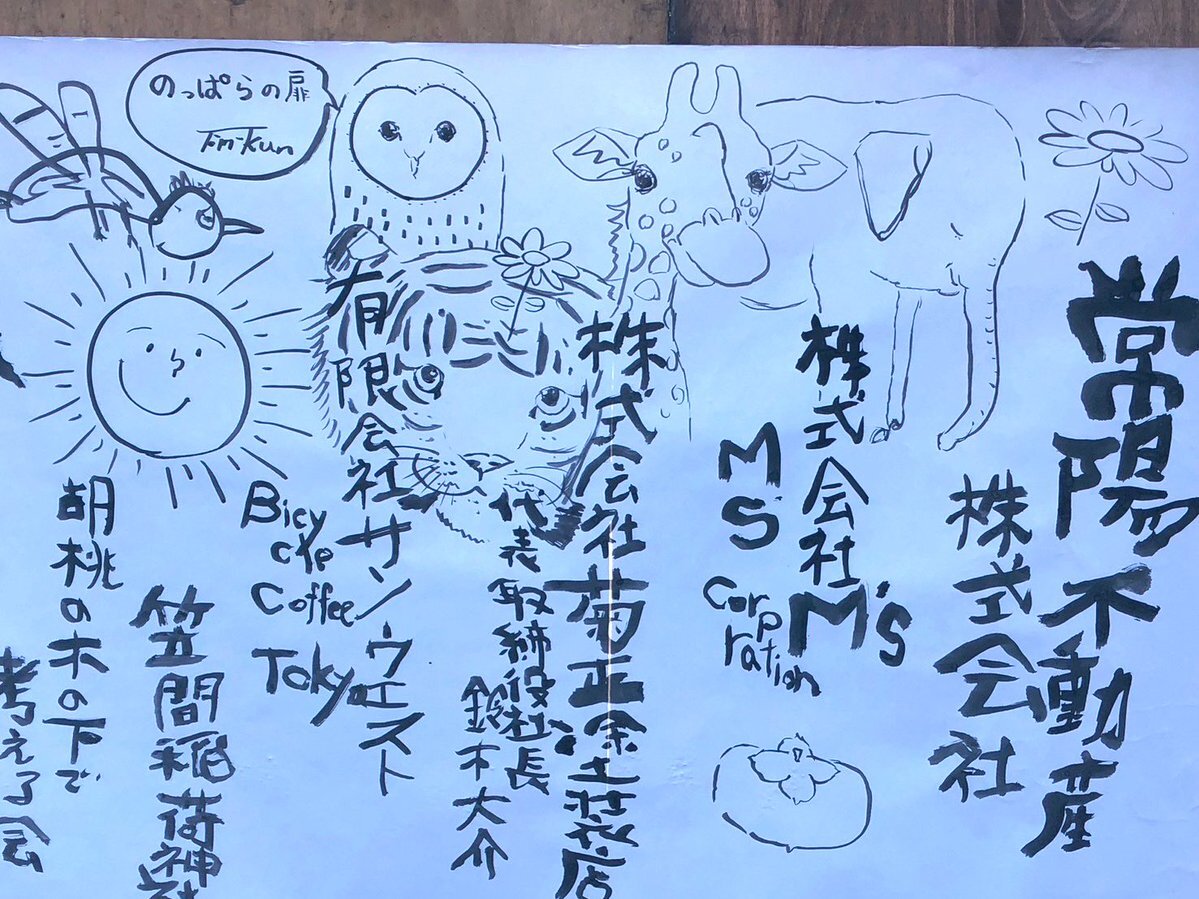 常陽不動産
株式会社
株式会社M's
M
S'
Corp
ration
株式会社菊正塗装店
代表取締役社長
鈴木大介
有限会社サンウエスト
Bicy
cle
Coffee
Tokyo
笠間稲荷神社
胡桃の木の下で
考える会
のっぱらの扉